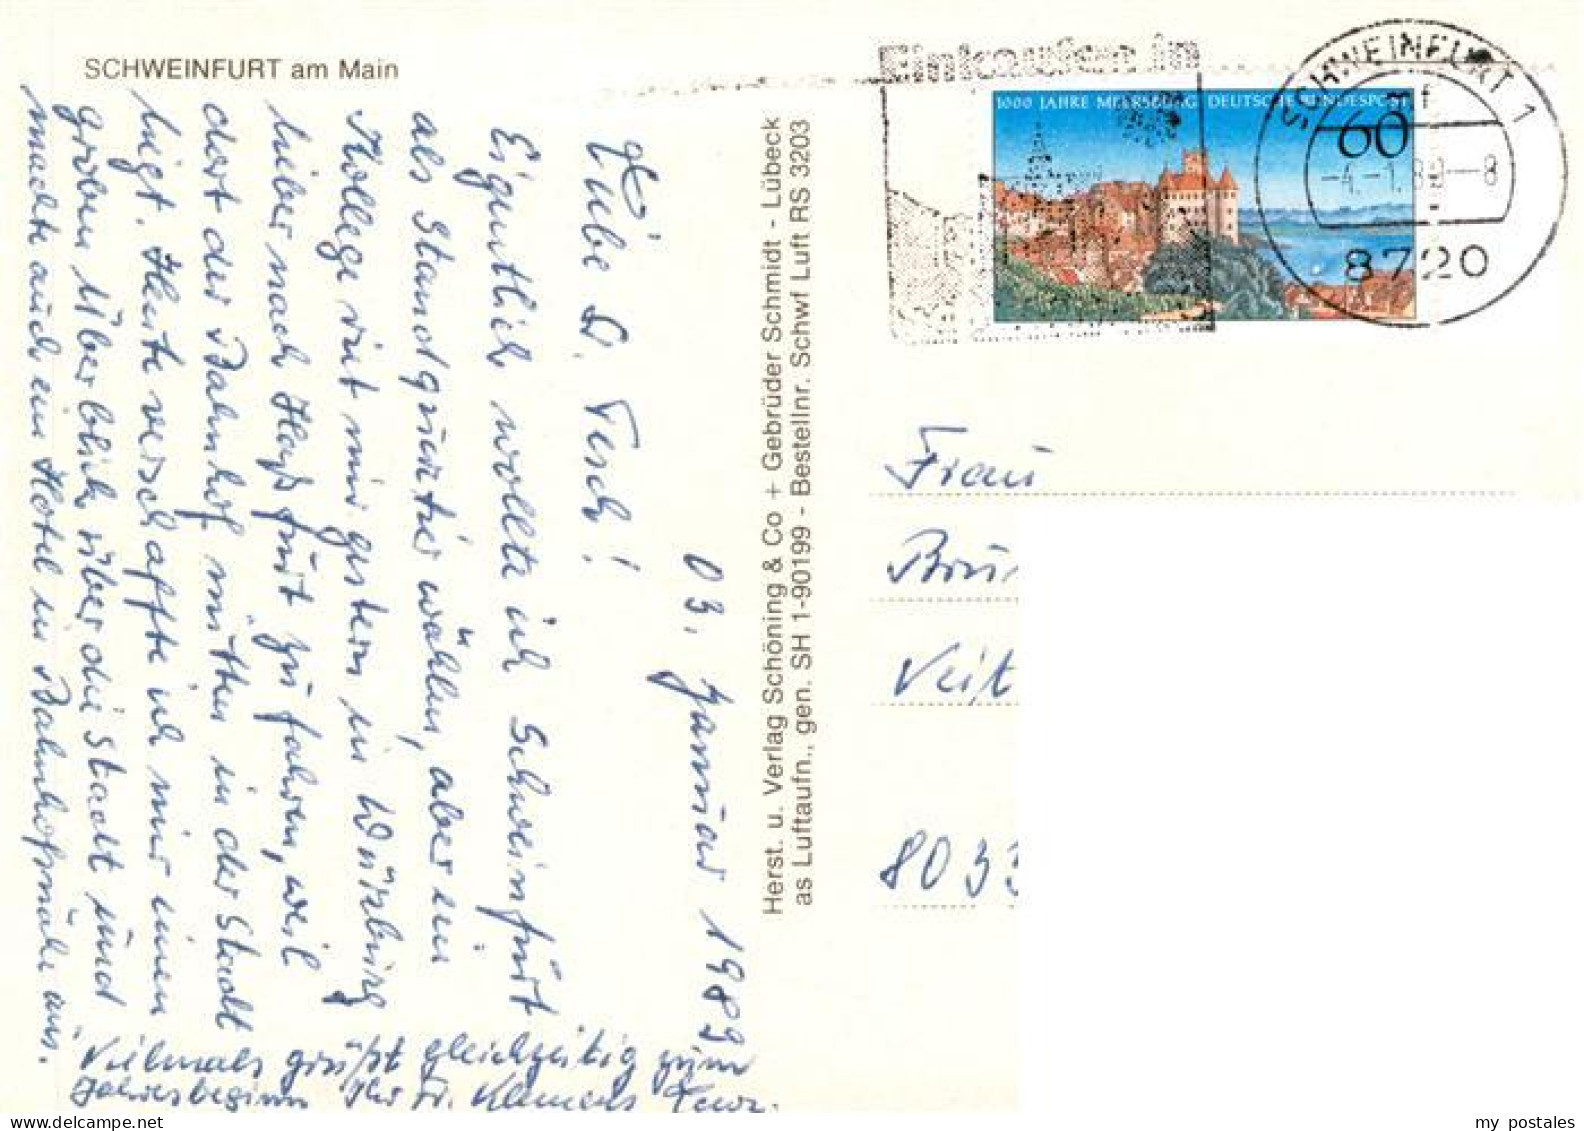 SCHWEINFURT am Main
03. Januar 1989
Liebe Fr. Tesch!
Eigentlich wollte ich Schweinfurt
als Standquartier wählen, aber ein
Kollege riet mir gestern in Würzburg
lieber nach Haßfurt zu fahren, weil
dort der Bahnhof mitten in der Stadt
liegt. Heute verschaffte ich mir einen
groben Überblick über die Stadt und
machte auch ein Hotel in Bahnhofsnähe aus.
Vielmals grüßt gleichzeitig zum
Jahresbeginn Ihr Fr. Klemens
Herst. u. Verlag Schöning & Co + Gebrüder Schmidt - Lübeck
as Luftaufn., gen. SH 1-90199 - Bestellnr. Schwf Luft RS 3203
Einkaufen in
1000 JAHRE MEERSBURG DEUTSCHE BUNDESPOST
60
SCHWEINFURT 1
-4.-1.89--8
8720
Frau
Veit
8033
my postales